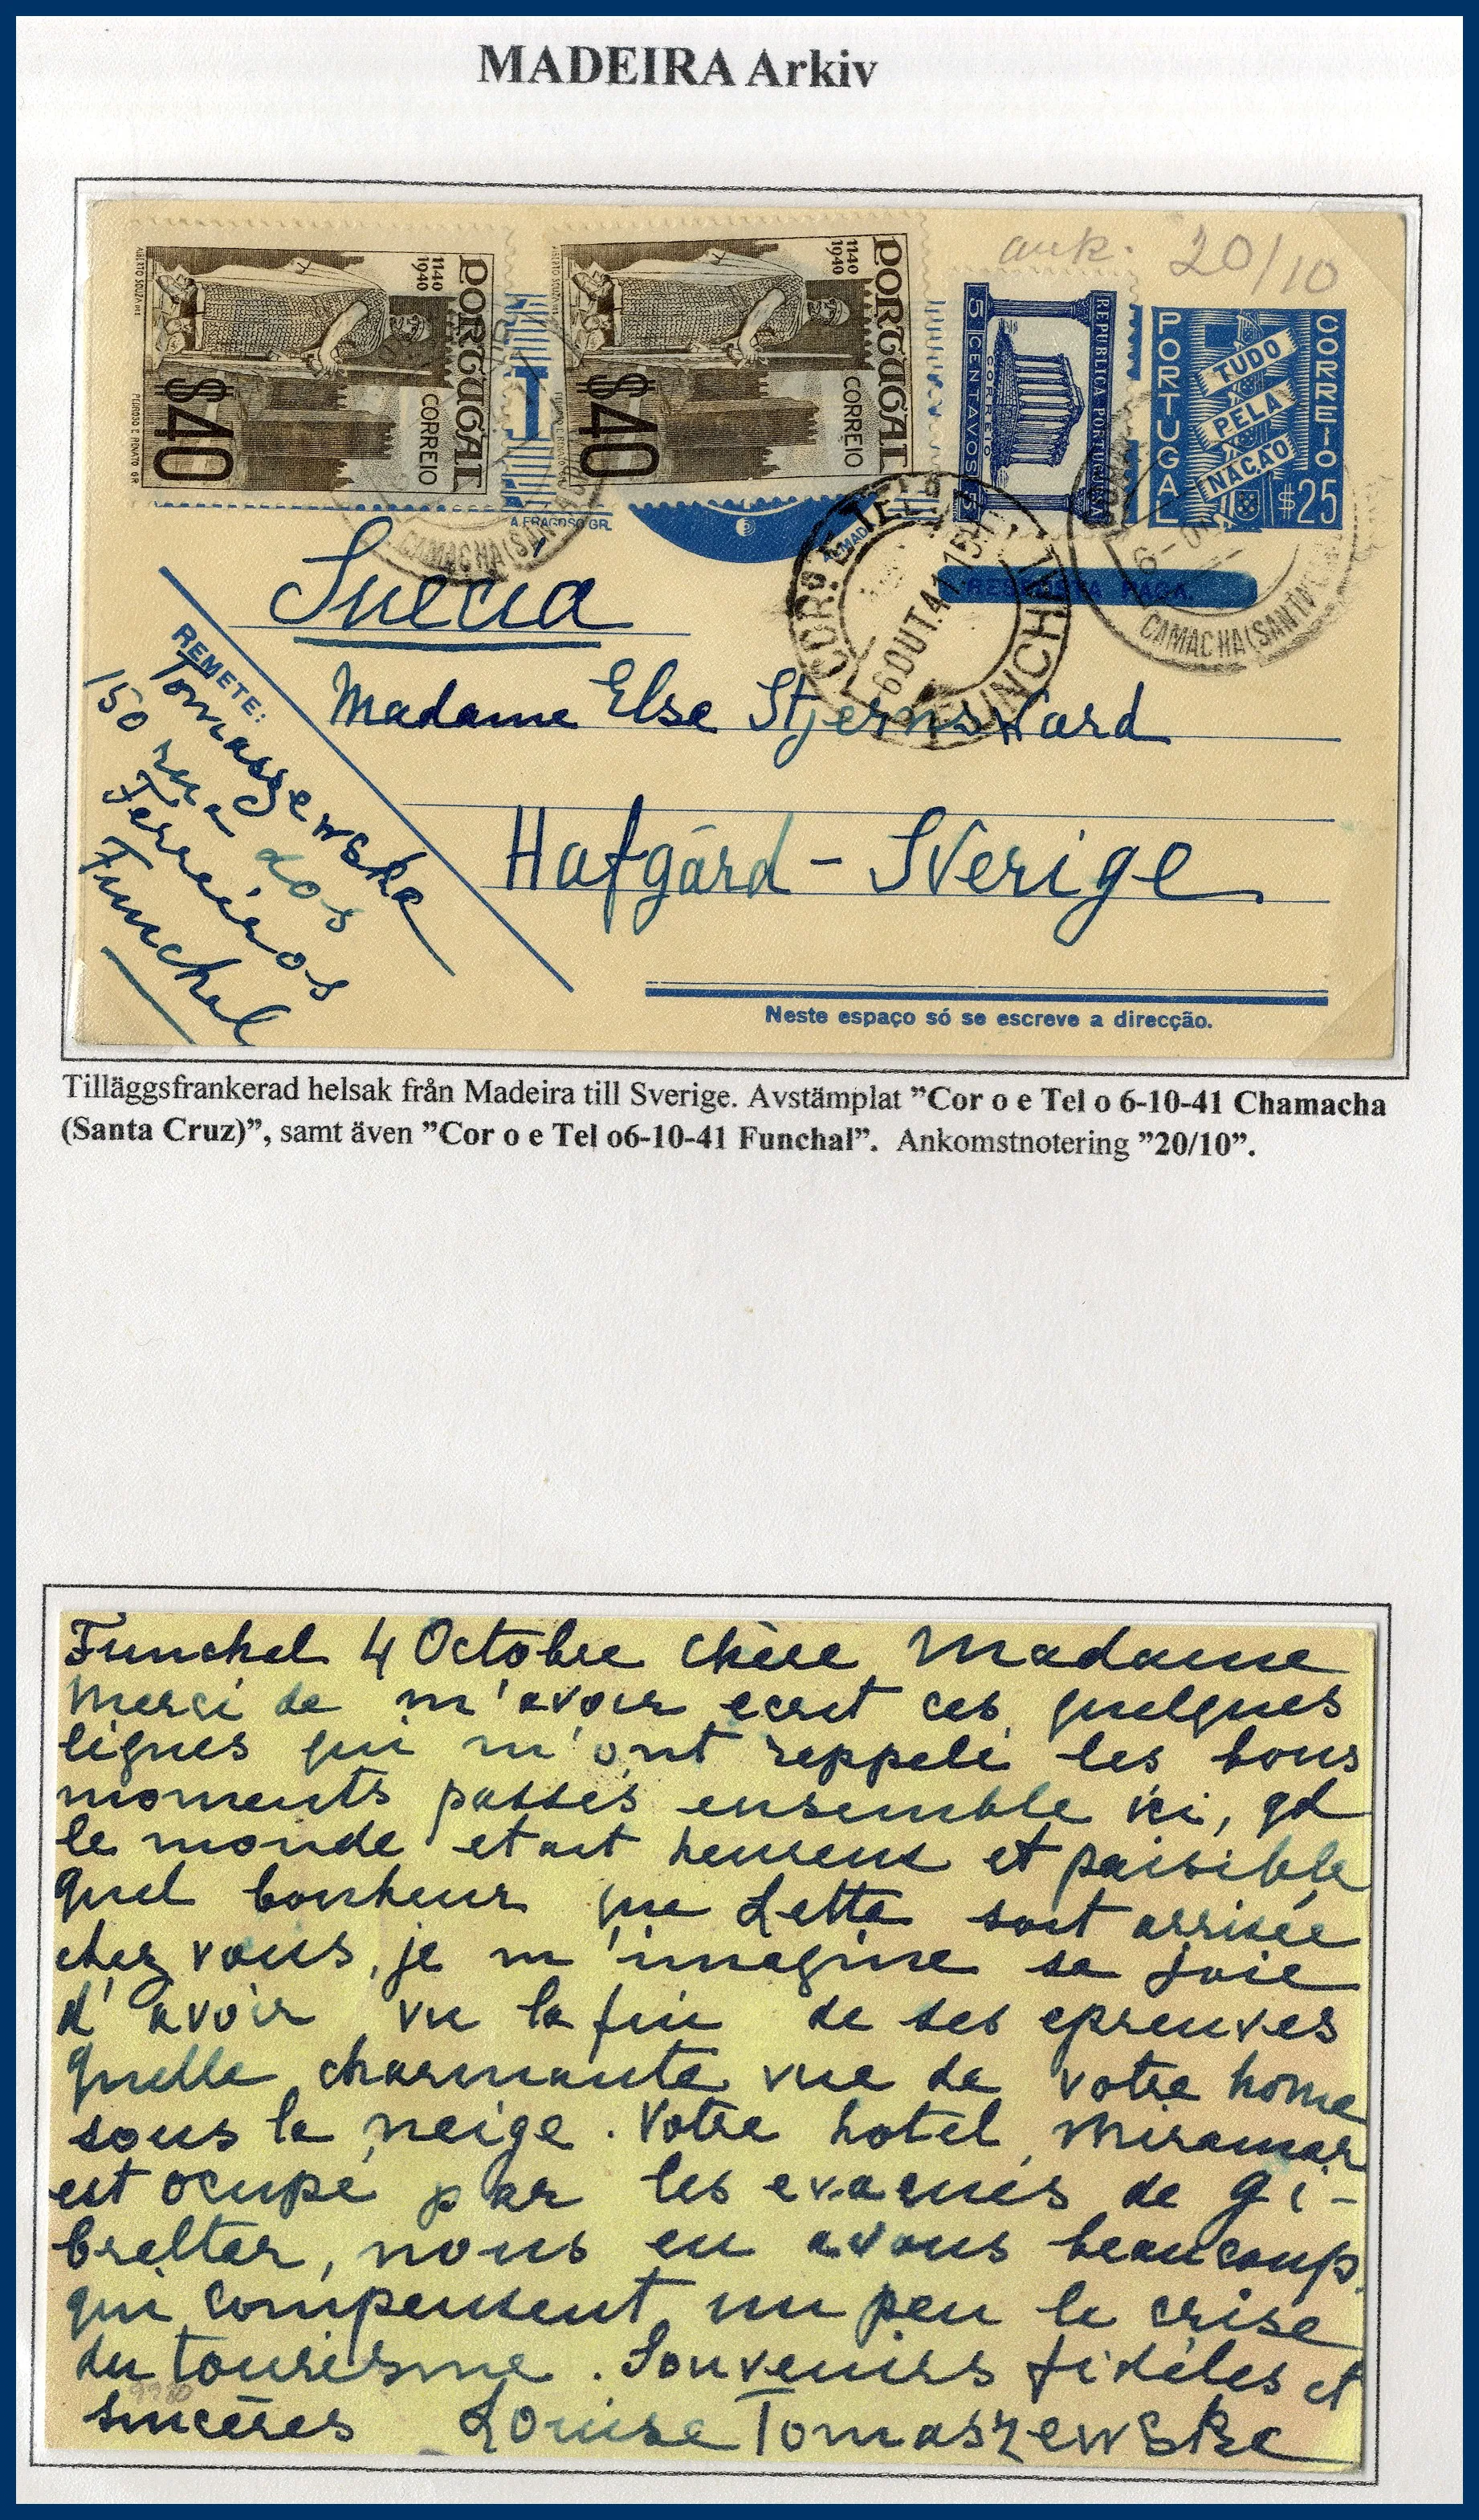 MADEIRA Arkiv
ank. 20/10
ALBERTO SOUZA
1140
1940
PORTUGAL
CORREIO
$40
PEDROSO E RENATO GR.
1140
1940
PORTUGAL
CORREIO
$40
REPUBLICA PORTUGUESA
CORREIO
5 CENTAVOS 5
PORTUGAL
CORREIO
TUDO
PELA
NAÇÃO
$25
A.FRAGOSO GR.
CAMACHA(SAN
COR.º E TEL.º
6OUT.41 15H
FUNCHAL
RESPOSTA PAGA.
6-OUT
CAMACHA(SANTA
Suecia
REMETE:
Tomaszewska
150 rua dos
Ferreiros
Funchal
Madame Else Stjernsward
Hafgård - Sverige
Neste espaço só se escreve a direcção.
Tilläggsfrankerad helsak från Madeira till Sverige. Avstämplat ”Cor o e Tel o 6-10-41 Chamacha
(Santa Cruz)”, samt även ”Cor o e Tel o6-10-41 Funchal”. Ankomstnotering ”20/10”.
Funchal 4 Octobre Chère Madame
Merci de m'avoir ecrit ces quelques
lignes qui m'ont reppelé les bons
moments passés ensemble ici, qd
le monde etait heureux et paisible
quel bonheur que Letta soit arrivée
chez vous, je m'imagine sa joie
d'avoir vu la fin de ses epreuves
quelle charmante vue de votre home
sous la neige. Votre hotel Miramar
est ocupé par les evacués de Gi-
braltar, nous en avons beaucoup
qui compensent un peu la crise
du tourisme. Souvenirs fidéles et
sincéres Louise Tomaszewska